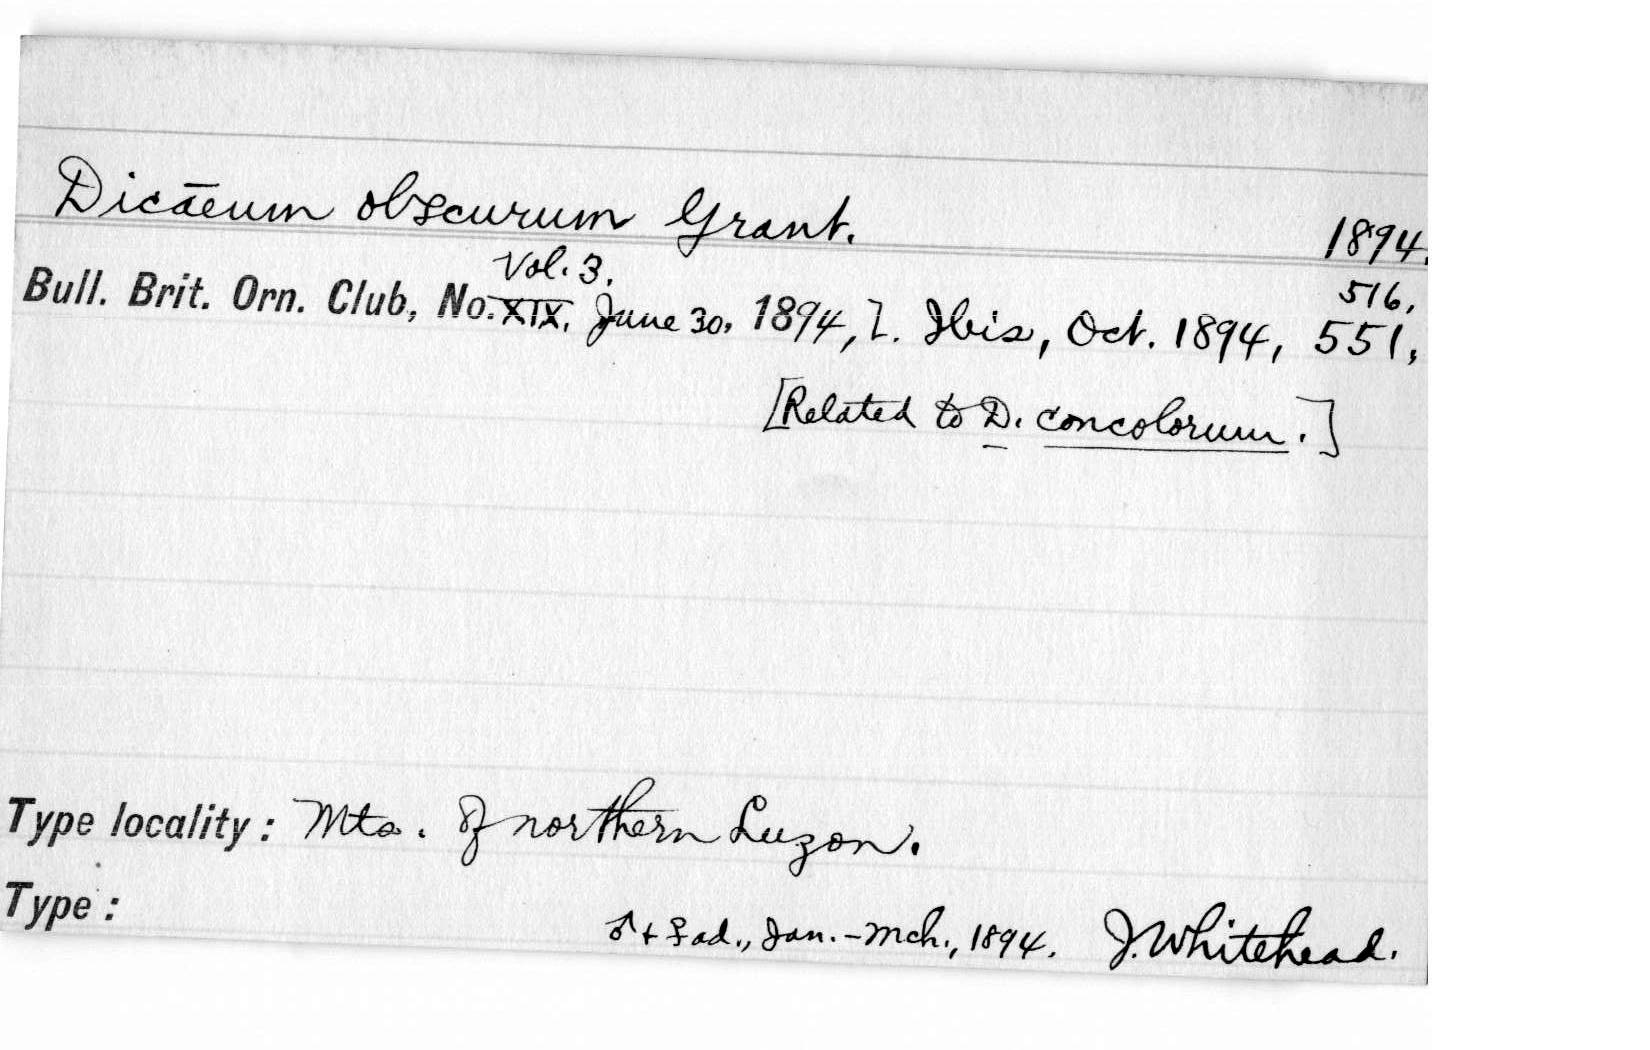 Dicaeum obscurum Grant. 1894.
Vol. 3. 516,
Bull. Brit. Orn. Club, No. XIX, June 30, 1894, l. Ibis, Oct. 1894, 551,
[Related to D. concolorum.]
Type locality: Mts. of northern Luzon.
Type: ♂ + ♀ ad., Jan.-Mch., 1894. J. Whitehead.